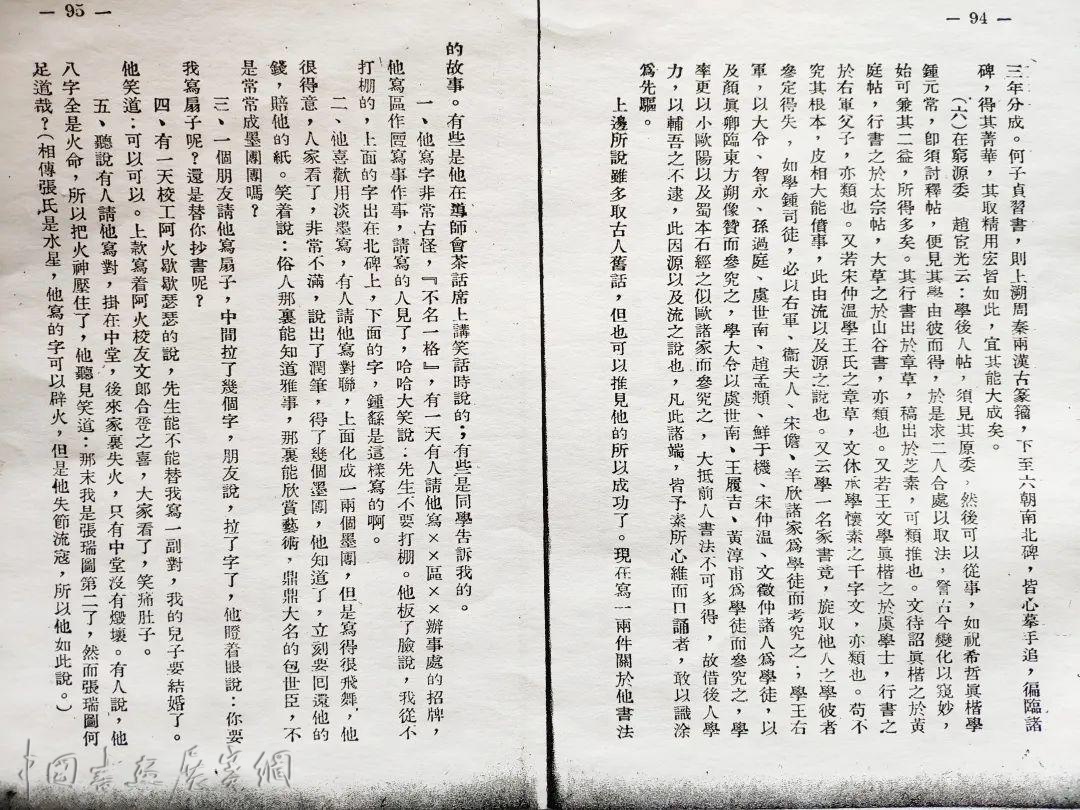 — 94 —
三年分成。何子貞習書，則上溯周秦兩漢古篆籀，下至六朝南北碑，皆心摹手追，徧臨諸
碑，得其菁華，其取精用宏皆如此，宜其能大成矣。
(六)在窮源委　趙宧光云：學後人帖，須見其原委，然後可以從事，如祝希哲眞楷學
鍾元常，卽須討釋帖，便見其學由彼而得，於是求二人合處以取法，警古今變化以窺妙，
始可兼其二益，所得多矣。其行書出於章草，稿出於芝素，可類推也。文待詔眞楷之於黃
庭帖，行書之於太宗帖，大草之於山谷書，亦類也。又若王文學眞楷之於虞學士，行書之
於右軍父子，亦類也。又若宋仲温學王氏之章草，文休承學懷素之千字文，亦類也。苟不
究其根本，皮相大能僨事，此由流以及源之說也。又云學一名家書竟，旋取他人之學彼者
參定得失，如學鍾司徒，必以右軍、衞夫人、宋儋、羊欣諸家爲學徒而考究之，學王右
軍，以大令、智永、孫過庭、虞世南、趙孟頫、鮮于機、宋仲温、文徵仲諸人爲學徒，以
及顏眞卿臨東方朔像贊而參究之，學大令以虞世南、王履吉、黃淳甫爲學徒而參究之，學
率更以小歐陽以及蜀本石經之似歐諸家而參究之，大抵前人書法不可多得，故借後人學
力，以輔吾之不逮，此因源以及流之說也，凡此諸端，皆予素所心維而口誦者，敢以識涂
爲先驅。
上邊所說雖多取古人舊話，但也可以推見他的所以成功了。現在寫一兩件關於他書法
— 95 —
的故事。有些是他在導師會茶話席上講笑話時說的；有些是同學告訴我的。
一、他寫字非常古怪，『不名一格』，有一天有人請他寫××區××辦事處的招牌，
他寫區作𠥹寫事作亊，請寫的人見了，哈哈大笑說：先生不要打棚。他板了臉說，我從不
打棚的，上面的字出在北碑上，下面的字，鍾繇是這樣寫的啊。
二、他喜歡用淡墨寫，有人請他寫對聯，上面化成一兩個墨團，但是寫得很飛舞，他
很得意，人家看了，非常不滿，說出了潤筆，得了幾個墨團，他知道了，立刻要囘還他的
錢，賠他的紙。笑着說：俗人那裏能知道雅事，那裏能欣賞藝術，鼎鼎大名的包世臣，不
是常常成墨團團嗎？
三、一個朋友請他寫扇子，中間拉了幾個字，朋友說，拉了字了，他瞪着眼說：你要
我寫扇子呢？還是替你抄書呢？
四、有一天校工阿火歇歇瑟瑟的說，先生能不能替我寫一副對，我的兒子要結婚了。
他笑道：可以可以。上款寫着阿火校友文郎合卺之喜，大家看了，笑痛肚子。
五、聽說有人請他寫對，掛在中堂，後來家裏失火，只有中堂沒有燬壞。有人說，他
八字全是火命，所以把火神壓住了，他聽見笑道：那末我是張瑞圖第二了，然而張瑞圖何
足道哉？(相傳張氏是水星，他寫的字可以辟火，但是他失節流寇，所以他如此說。)
中國書法展賽網